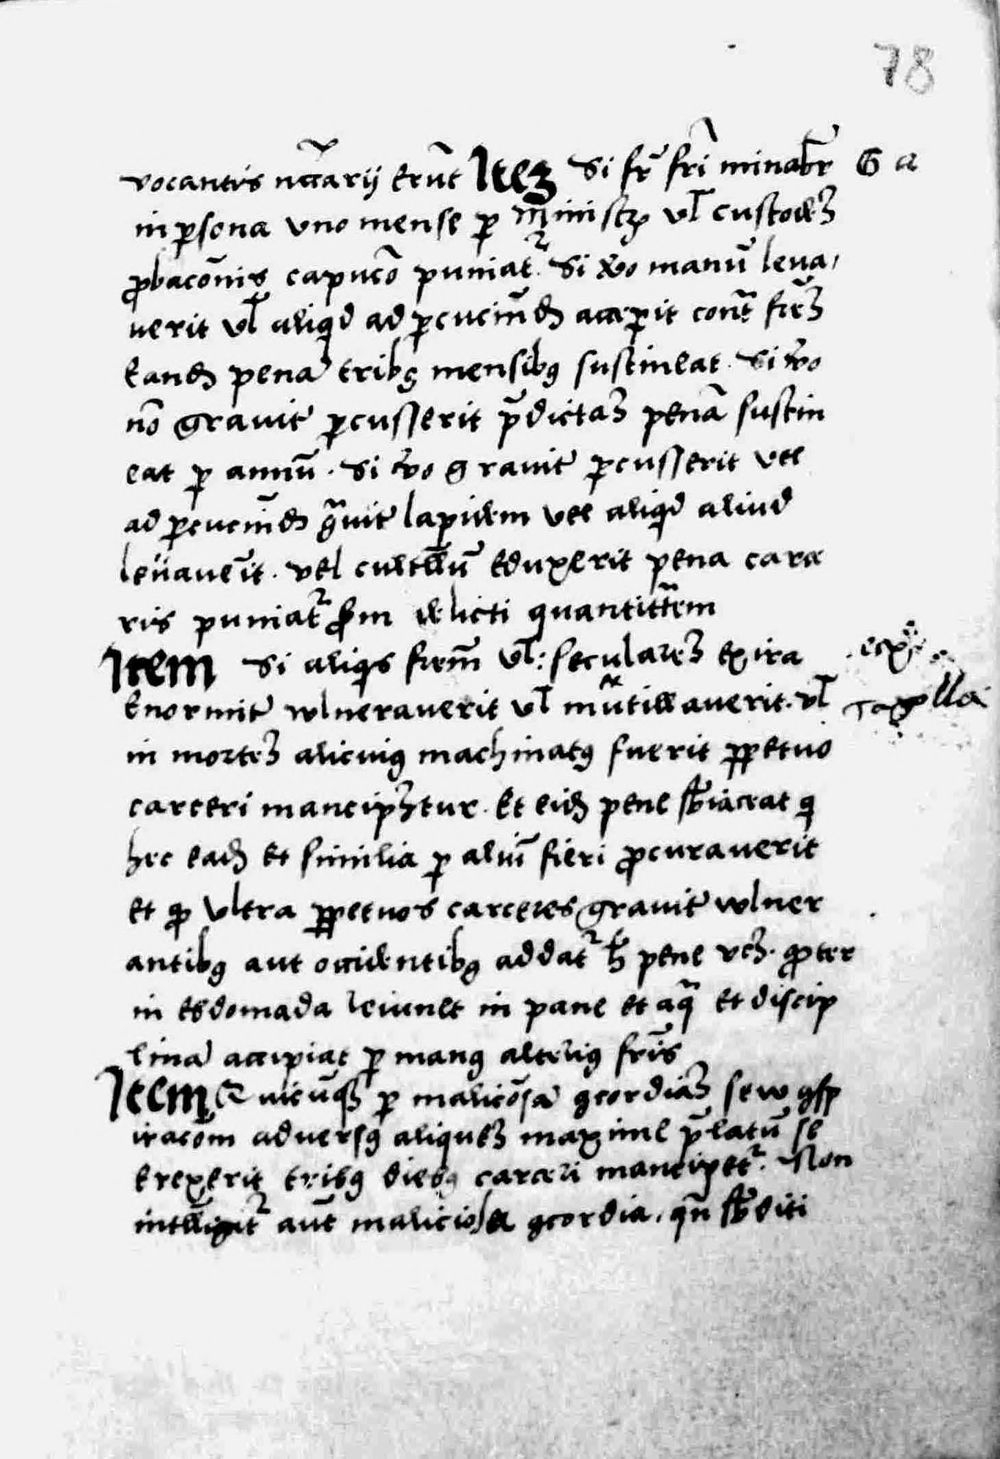 78
vocantis nccarij erūt Itez Si fr̄ fri minabr̄ G a
in ꝑsona uno mense ꝑ ministꝝ vl custodēʒ
ꝓbacōnis capucō puniatᷣ. Si v̊o manū leua,
uerit vl aliqd ad ꝑcuciēdʒ acceperit cont̄ frēʒ
Eandʒ pena tribꝯ mensibꝯ sustineat. Si v̊o
nō grauit̄ ꝑcusserit p̄dictaʒ penā sustin
eat ꝑ annū. Si v̊o grauit̄ ꝑcusserit vel
ad ꝑcuciēdʒ g̃uit̄ lapidem vel aliqd aliud
leuauerit. vel cultellū eduxerit pena carce
ris puniatᷣ scdm delicti quantitatem
Item Si aliqis frem̄ vl: seculareʒ ex ira
Enormit̄ vulnerauerit vl mutillauerit. vl
in morteʒ alicuiꝯ machinatꝯ fuerit ꝑpetuo
carceri mancipetur. Et eidʒ pene sbiaceat qi
hec eadʒ et similia ꝑ aliū fieri ꝓcurauerit
et qi vltra ꝑpetuos carceres grauit̄ vulner
antibꝯ aut occidentibꝯ addatᷣ h̄ pene vcʒ. qter
in ebdomada ieiunet in pane et aq̃ et discip
lina accipiat ꝑ manꝯ alteriꝯ fris
Item Quicūqʒ ꝑ maliciōsa ꝯcordiaʒ seu ꝯsp
iracōm aduersꝯ aliqueʒ maxime p̄latū se
erexerit tribꝯ diebꝯ carceri mancipetᷣ. Non
intelligatᷣ aut̄ maliciosa ꝯcordia. qn̄ sbditi